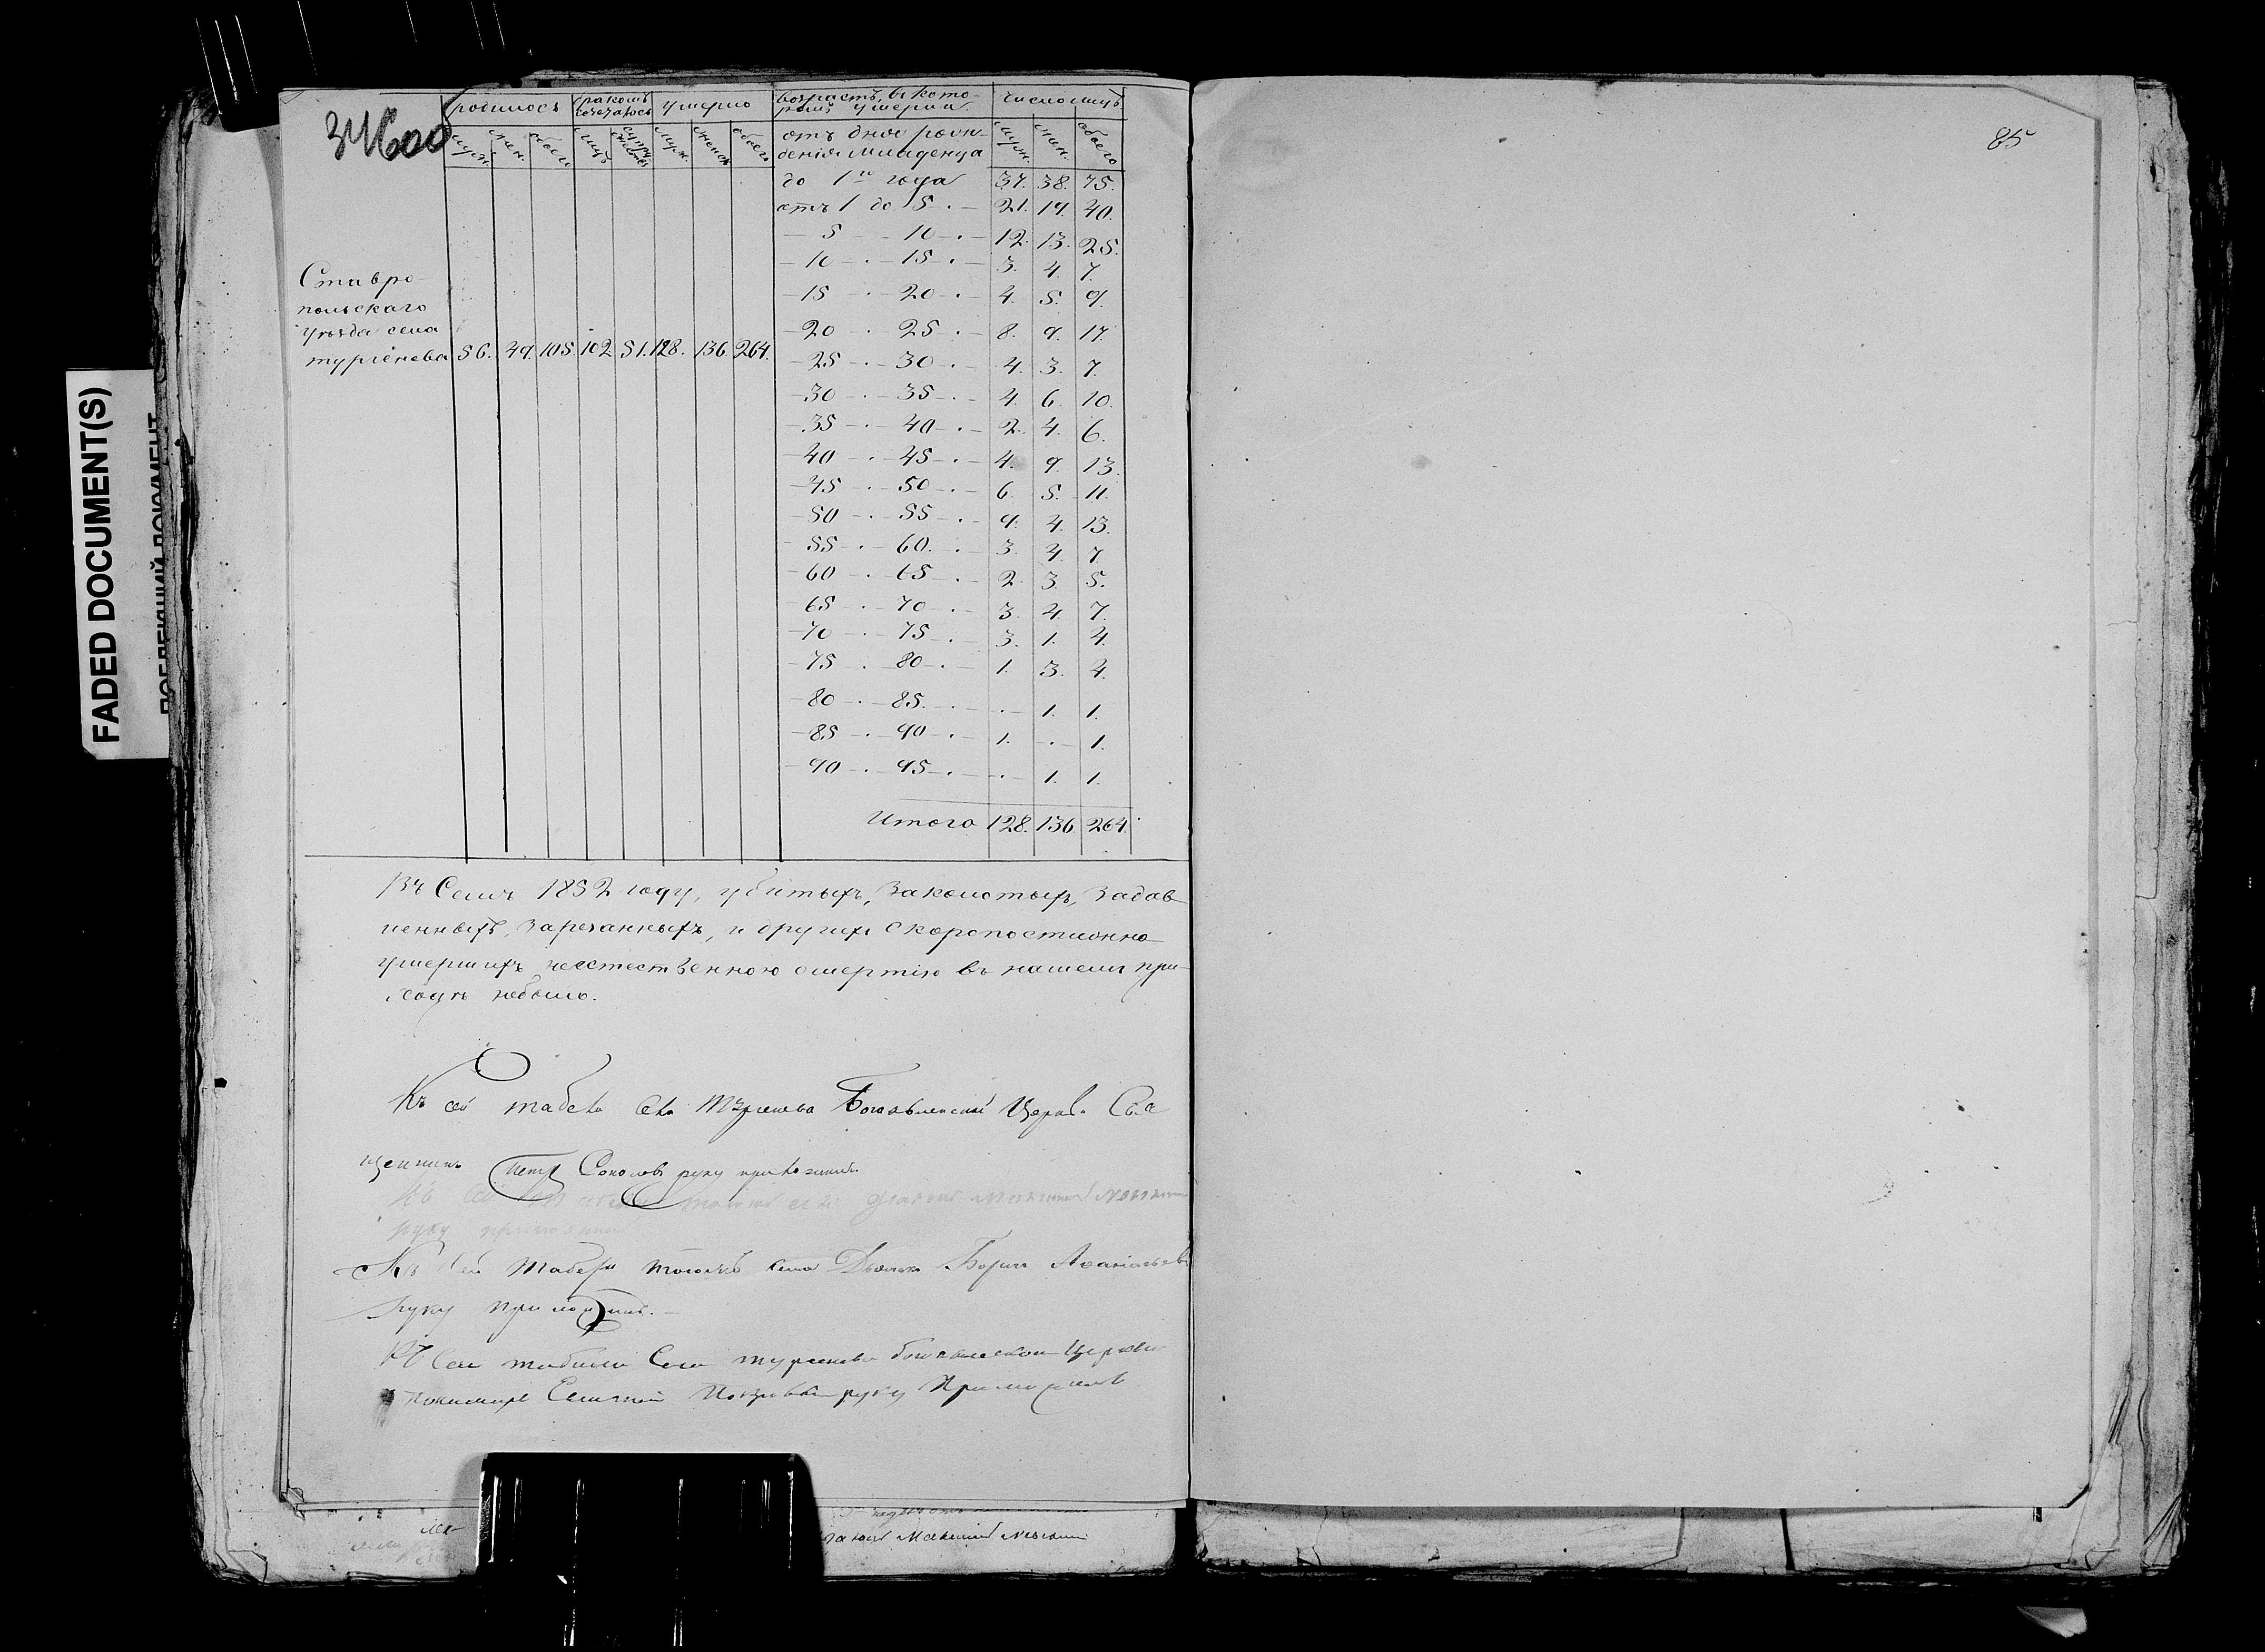 34600
родилось бракомъ сочеталось умерло возрастъ, въ кото- число лицъ
ромъ умерли
муж. жен. обоего лицъ супружествъ муж. женск. обоего отъ дня рож- муж. жен. обоего
денія младенца
до 1го года 37. 38. 75.
отъ 1 до 5 . — 21. 19. 40.
— 5 — 10 — . — 12. 13. 25.
— 10 — . — 15 — . — 3. 4. 7.
— 15 — . — 20 — . — 4. 5. 9.
— 20 — . — 25 — . — 8. 9. 17.
— 25 — . — 30 — . — 4. 3. 7.
— 30 — . — 35 — . — 4. 6. 10.
— 35 — . — 40 — . — 2. 4. 6.
— 40 — . — 45 — . — 4. 9. 13.
— 45 — . — 50 — . — 6. 5. 11.
— 50 — . — 55 — . — 9. 4. 13.
— 55 — . — 60. — . — 3. 4. 7
— 60 — . — 65 — . — 2. 3. 5.
— 65 — . — 70 — . — 3. 4. 7.
— 70 — . — 75 — . — 3. 1. 4.
— 75 — . — 80 — . — 1. 3. 4.
— 80 — . — 85. — . — . — 1. 1.
— 85 — . — 90 — . — 1. . — 1.
— 90 — . — 95 — . — . — 1. 1.
Итого 128. 136. 264.
Ставро-
польскаго
уѣзда села
тургенева 56. 49. 105. 102 51. 128. 136. 264.
Въ Семъ 1852 году, убитыхъ, Заколотыхъ, Задав-
ленныхъ, Зарезанныхъ, и другихъ Скоропостижно
умершихъ неестественною смертію въ нашемъ при-
ходѣ небыло.
Къ сей табели села Тургенева Богоявленской Церкви Свя
щенникъ Петръ Соколовъ руку приложилъ.
Къ сей табели тогожъ села
руку приложилъ
Къ Сей Табели тогожъ села Дьячекъ Борисъ Аѳанасьевъ
руку приложилъ. —
Къ Сей табели Села тургенева богоявлеской Церкви
пономарь руку Приложилъ
85
FADED DOCUMENT(S)